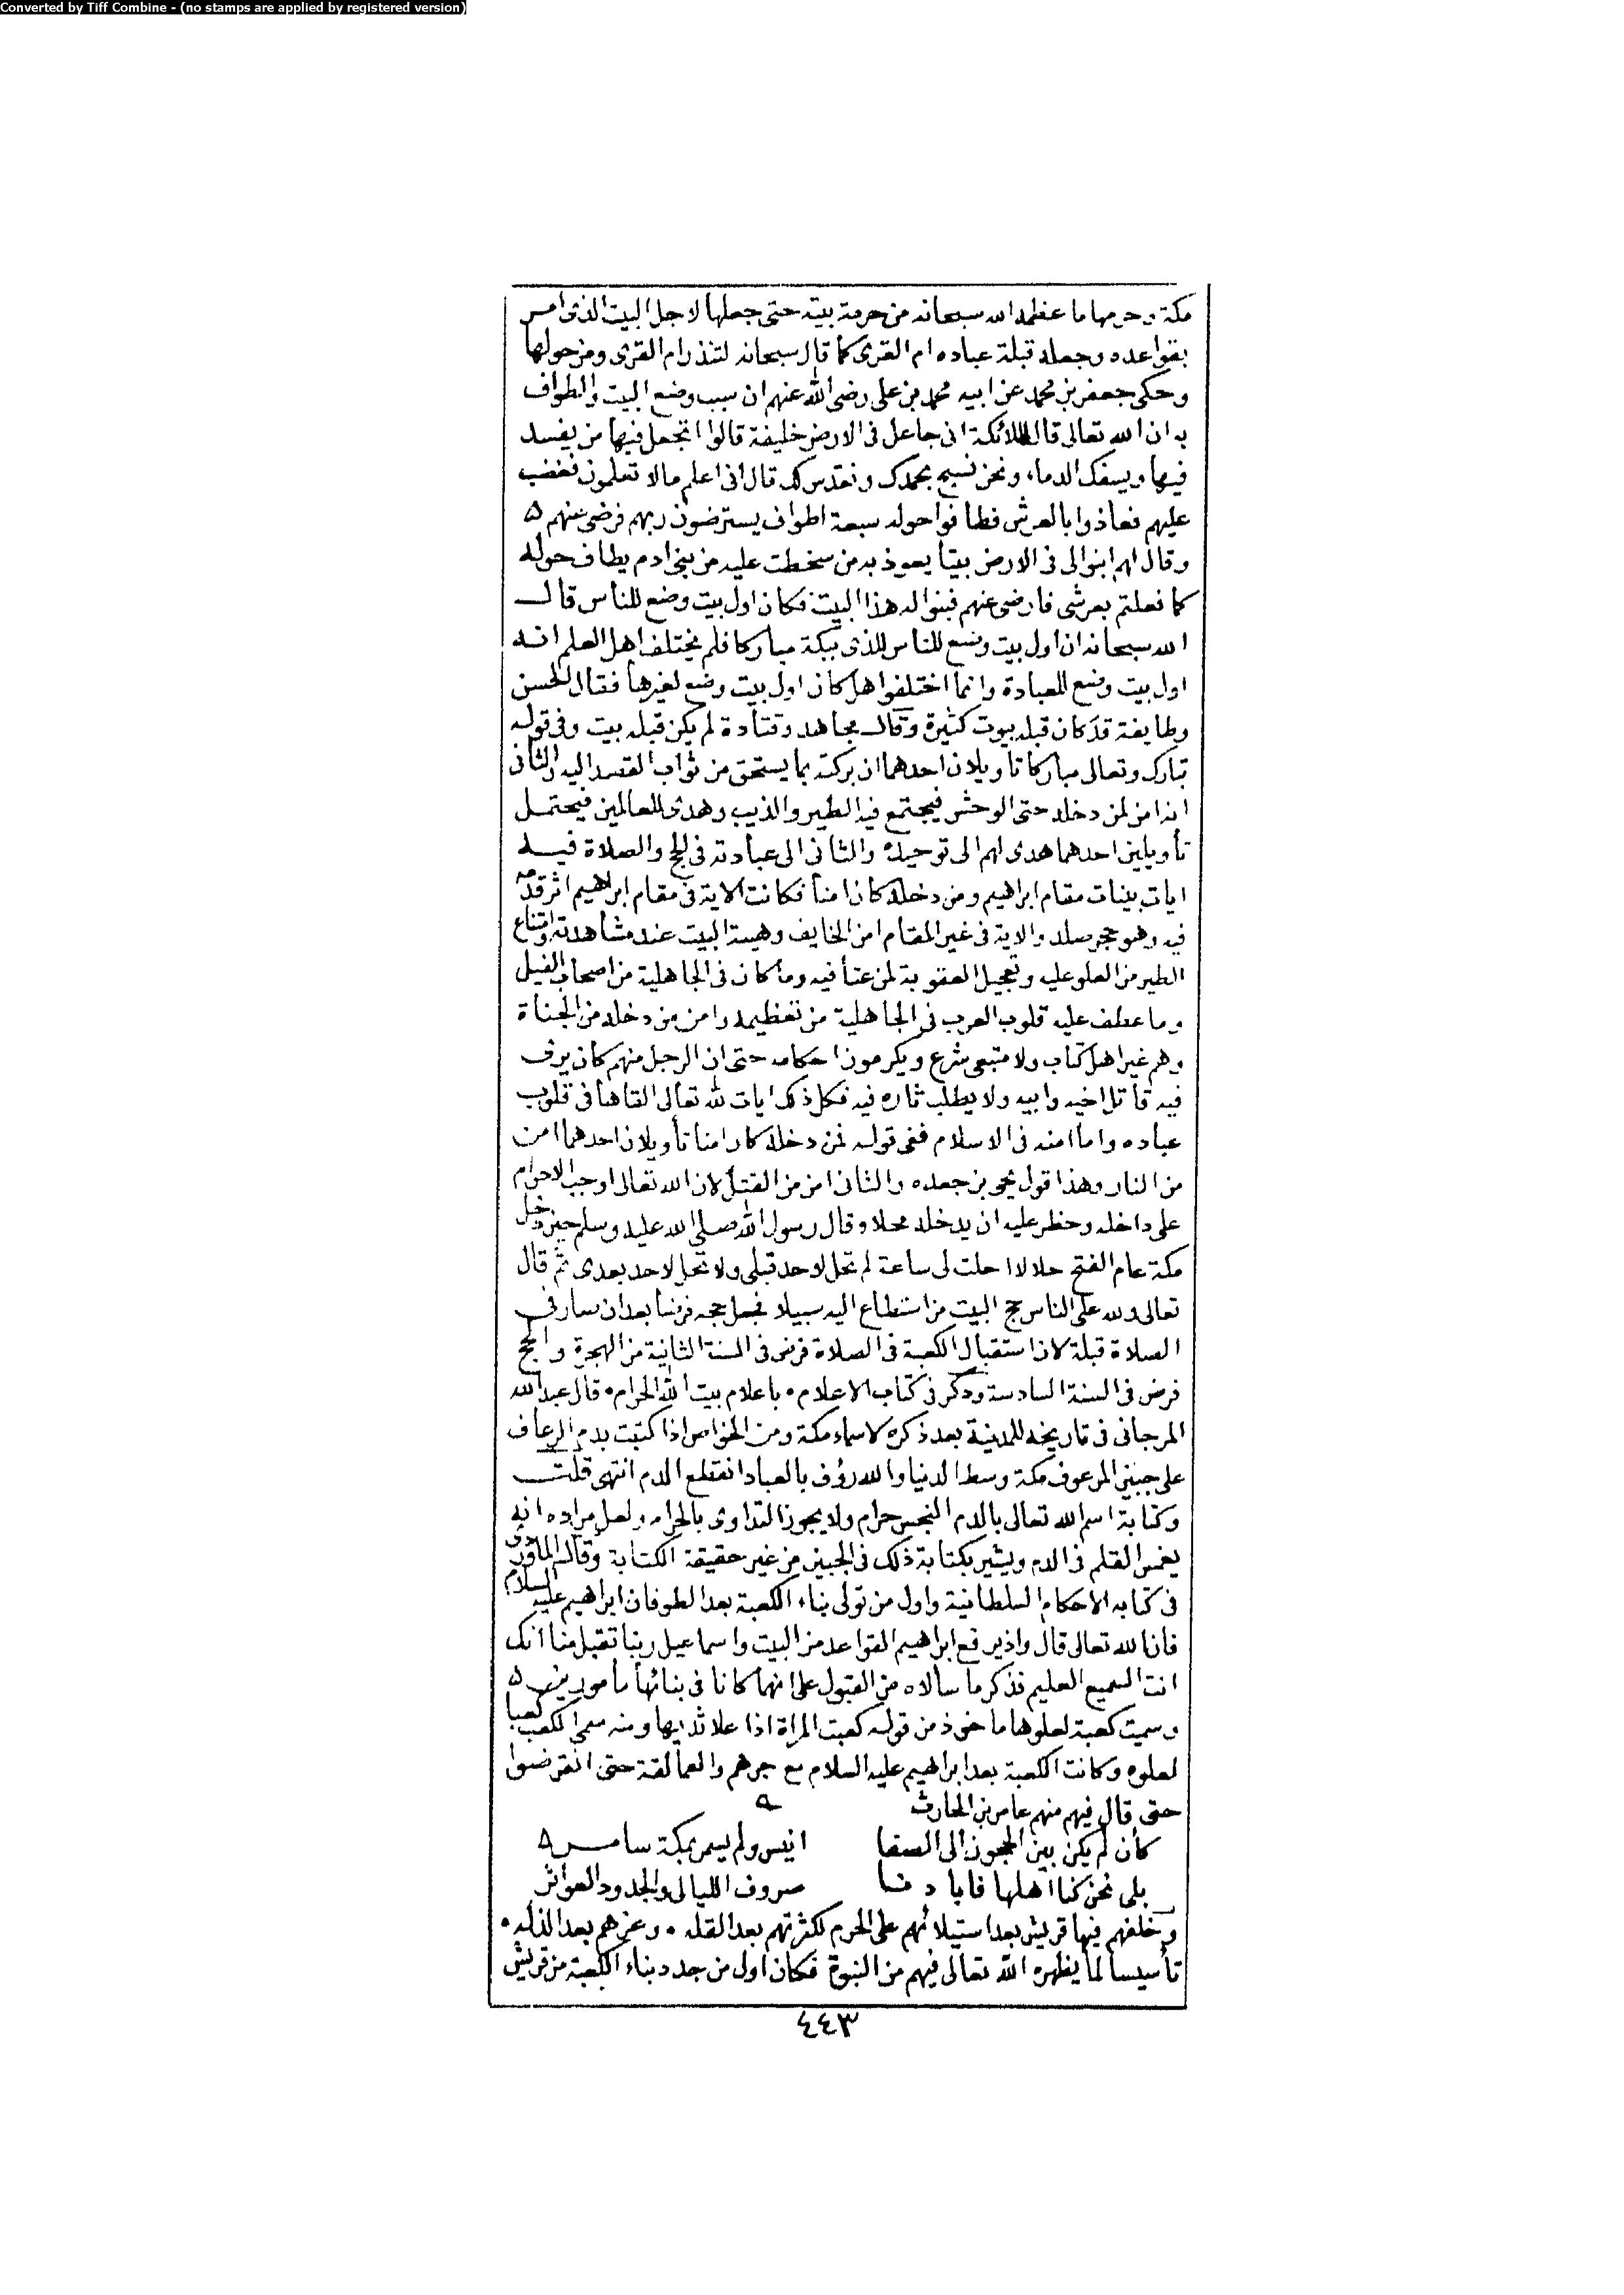 Converted by Tiff Combine - (no stamps are applied by registered version)
مكة وحرمها ما عظمه الله سبحانه من حرمة بيته حتى جعلها لاجل البيت الذى امر
بقواعده وجعله قبلة عباده ام القرى كما قال سبحانه لتنذر ام القرى ومن حولها
وحكى جعفر بن محمد عن ابيه محمد بن على رضى الله عنهم ان سبب وضع البيت والطواف
به ان الله تعالى قال للملائكة انى جاعل فى الارض خليفة قالوا اتجعل فيها من يفسد
فيها ويسفك الدماء ونحن نسبح بحمدك ونقدس لك قال انى اعلم مالا تعلمون فغضب
عليهم فعاذوا بالعرش فطافوا حوله سبعة اطواف يسترضون ربهم فرضى عنهم ه
وقال لهم ابنوا لى فى الارض بيتا يعوذ به من سخطت عليه من بنى ادم يطاف حوله
كما فعلتم بعرشى فارضى عنهم فبنوا له هذا البيت فكان اول بيت وضع للناس قال
الله سبحانه ان اول بيت وضع للناس للذى ببكة مباركا فلم يختلف اهل العلم انه
اول بيت وضع للعبادة وانما اختلفوا هل كان اول بيت وضع لغيرها فقال الحسن
وطايفة قد كان قبله بيوت كثيرة وقال مجاهد وقتادة لم يكن قبله بيت وفى قوله
تبارك وتعالى مباركا تاويلان احدهما ان بركته بما يستحق من ثواب القصد اليه والثانى
انه امن لمن دخله حتى الوحش فيجتمع فيه الطير والذيب وهدى للعالمين فيحتمل
تأويلين احدهما هدى لهم الى توحيده والثانى الى عبادته فى الحج والصلاة فيه
ايات بينات مقام ابراهيم ومن دخله كان امنا فكانت الاية فى مقام ابراهيم اثر قدمه
فيه وهو حجر صلد والاية فى غير المقام امن الخايف وهيبة البيت عند مشاهدته وامتناع
الطير من العلو عليه وتعجيل العقوبة لمن عتا فيه وما كان فى الجاهلية من اصحاب الفيل
وما عطف عليه قلوب العرب فى الجاهلية من تعظيمه وامن من دخله من الجناة
وهم غير اهل كتاب ولا متبعى شرع ويكرمون احكامه حتى ان الرجل منهم كان يرى
فيه قاتل اخيه وابيه ولا يطلب ثاره فيه فكل ذلك ايات لله تعالى القاها فى قلوب
عباده واما امنه فى الاسلام ففى قوله فمن دخله كان امنا تأويلان احدهما امن
من النار وهذا قول يحيى بن جعده والثانى امن من القتل لان الله تعالى اوجب الاحرام
على داخله وحظر عليه ان يدخله محلا وقال رسول الله صلى الله عليه وسلم حين دخل
مكة عام الفتح حلالا احلت لى ساعة لم تحل لاحد قبلى ولا تحل لاحد بعدى ثم قال
تعالى ولله على الناس حج البيت من استطاع اليه سبيلا فجعل حجه فرضا بعد ان صار فى
الصلاة قبلة لان استقبال الكعبة فى الصلاة فرض فى السنة الثانية من الهجرة والحج
فرض فى السنة السادسة وذكر فى كتاب الاعلام • باعلام بيت الله الحرام • قال عبد الله
المرجانى فى تاريخه للمدينة بعد ذكره لاسماء مكة ومن الخواص اذا كتبت بدم الرعاف
على جبين المرعوف مكة وسط الدنيا والله رؤف بالعباد انقطع الدم انتهى قلت
وكتابة اسم الله تعالى بالدم النجس حرام ولا يجوز التداوى بالحرام ولعل مراده انه
يغمس القلم فى الدم ويشير بكتابة ذلك فى الجبين من غير حقيقة الكتابة وقال الماوردى
فى كتابه الاحكام السلطانية واول من تولى بناء الكعبة بعد الطوفان ابراهيم عليه السلام
فان الله تعالى قال واذ يرفع ابراهيم القواعد من البيت واسماعيل ربنا تقبل منا انك
انت السميع العليم فذكر ما سألاه من القبول على انهما كانا فى بنائها مأمورين ه
وسميت كعبة لعلوها ماخوذ من قوله كعبت المراة اذا علا ثديها ومنه سمى الكعب كعبا
لعلوه وكانت الكعبة بعد ابراهيم عليه السلام مع جرهم والعمالقة حتى انقرضوا
حتى قال فيهم منهم عامر بن الحارث
كأن لم يكن بين الحجون الى الصفا انيس ولم يسمر بمكة سامر ه
بلى نحن كنا اهلها فابادنا صروف الليالى والجدود العواثر
وخلفهم فيها قريش بعد استيلائهم على الحرم لكثرتهم بعد القله • وعزهم بعد الذله •
تأسيسا لما يظهره الله تعالى فيهم من النبوة فكان اول من جدد بناء الكعبة من قريش
٤٤٣